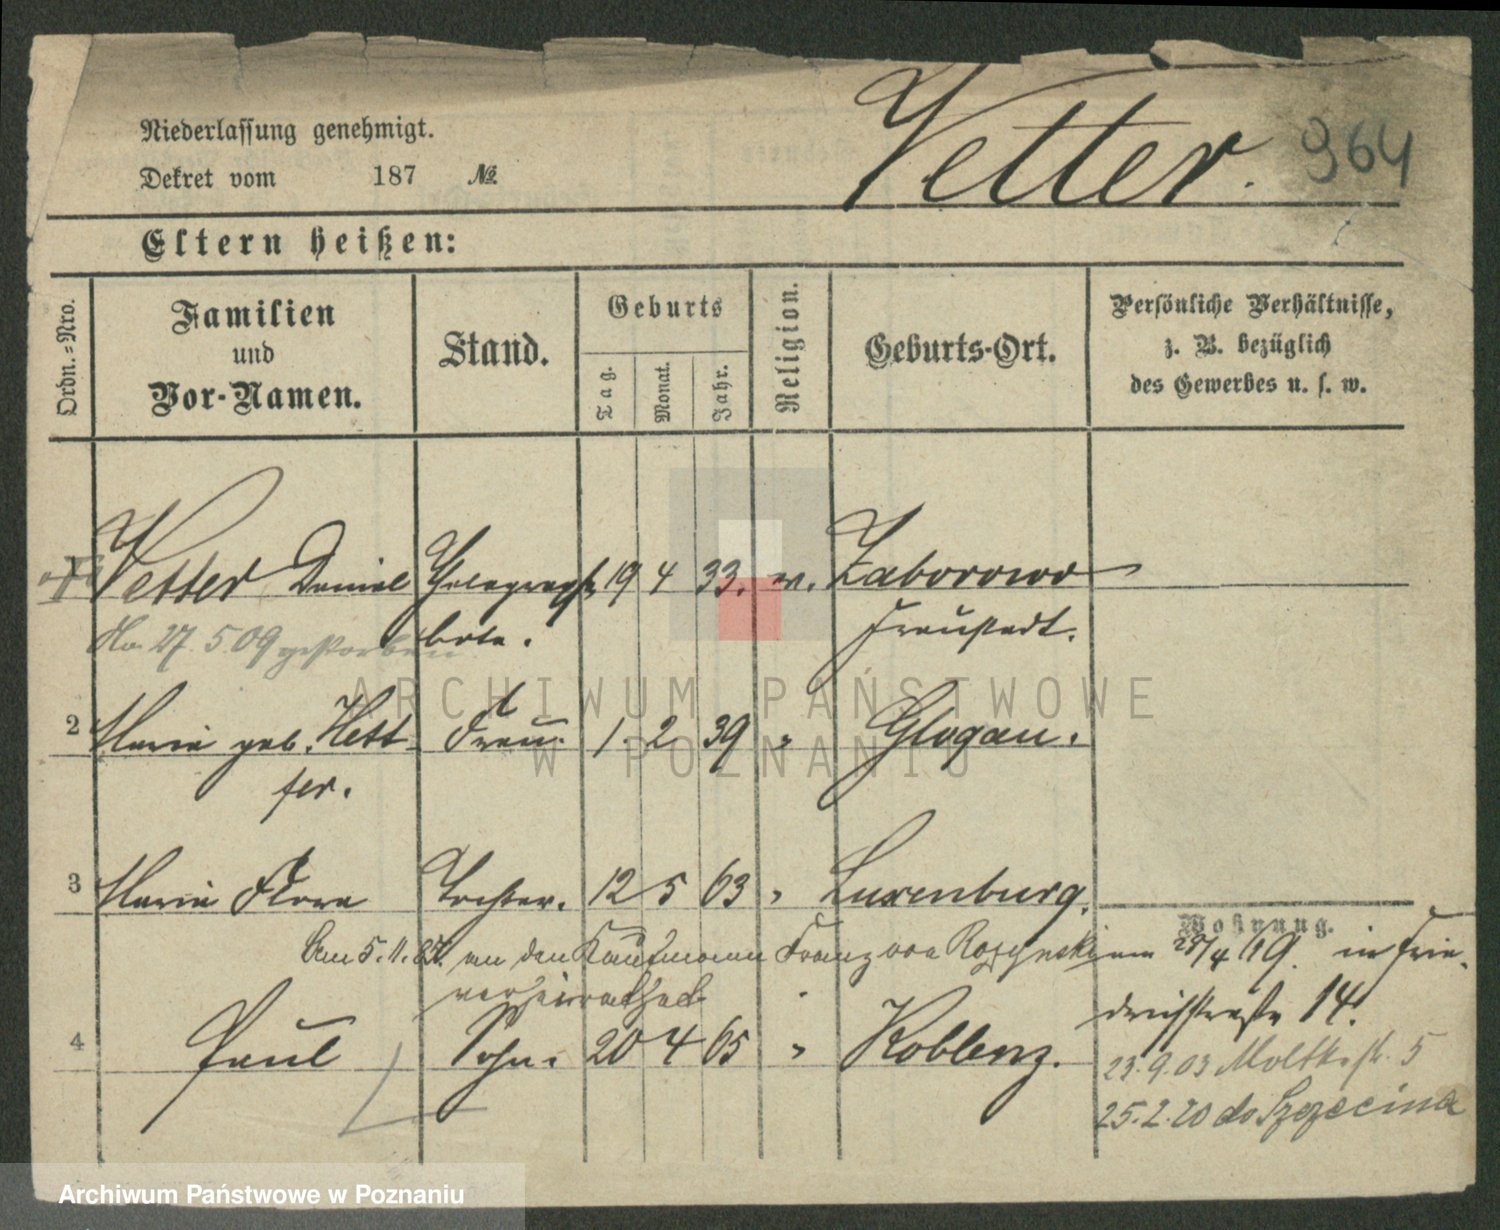 Niederlassung genehmigt.
Dekret vom 187 No.
Vetter. 964
Eltern heißen:
Ordn.=Nro.
Familien
und
Vor-Namen.
Stand.
Geburts
Tag.
Monat.
Jahr.
Religion.
Geburts-Ort.
Persönliche Verhältnisse,
z. B. bezüglich
des Gewerbes u. s. w.
Vetter Daniel Telegraph 19 4 33. Zaborowo
27. 5 09 gestorben bote. Fraustadt.
2 Maria geb. Hett Frau. 1. 2 39 " Glogau.
fer.
3 Maria Flora Tochter. 12 5 63 " Luxenburg.
Wohnung.
Am 5. 11. an den Kaufmann Franz von am 29/4 19. in Frie
verheirathet
drichstraße 14.
4 Paul Sohn. 20 4 65 " Koblenz.
23.9.03 Moltkestr. 5
25.2.20 do Szczecina
ARCHIWUM PAŃSTWOWE
W POZNANIU
Archiwum Państwowe w Poznaniu